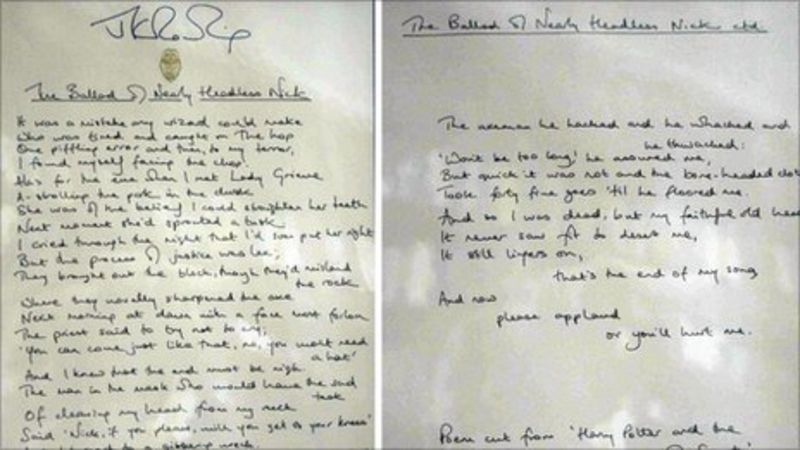 JK Rowling
The Ballad of Nearly Headless Nick
It was a mistake any wizard could make
Who was tired and caught on the hop
One piffling error and then, to my terror,
I found myself facing the chop.
Alas for the eve when I met Lady Grieve
A-strolling the park in the dusk
She was of the belief I could straighten her teeth
Next moment she'd sprouted a tusk
I cried through the night that I'd soon put her right
But the process of justice was lax;
They brought out the block, though they'd mislaid
the rock
Where they usually sharpened the axe
Next morning at dawn with a face most forlorn
The priest said to try not to cry,
'You can come just like that, no, you won't need
a hat'
And I knew that the end must be nigh.
The man in the mask who would have the sad
task
Of cleaving my head from my neck
Said 'Nick, if you please, will you get to your knees'
to a gibbering wreck
The Ballad of Nearly Headless Nick ctd
The axeman he hacked and he whacked and
he thwacked:
'Won't be too long' he assured me,
But quick it was not and the bone-headed clot
Took forty five goes 'til he floored me.
And so I was dead, but my faithful old head
It never saw fit to desert me,
It still lingers on,
that's the end of my song
And now
please applaud
or you'll hurt me.
Poem cut from 'Harry Potter and the